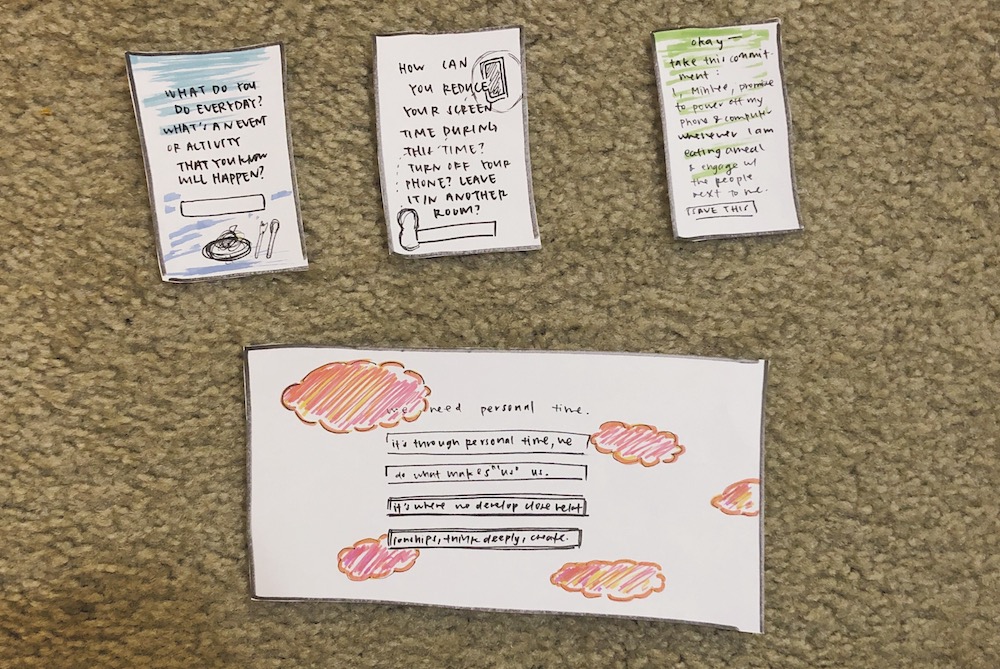 WHAT DO YOU
DO EVERYDAY?
WHAT'S AN EVENT
OR ACTIVITY
THAT YOU KNOW
WILL HAPPEN?
HOW CAN
YOU REDUCE
YOUR SCREEN
TIME DURING
THIS TIME?
TURN OFF YOUR
PHONE? LEAVE
IT IN ANOTHER
ROOM?
okay —
take this commit-
ment:
I, Minhee, promise
to power off my
phone & computer
whenever I am
eating a meal
& engage w/
the people
next to me.
SAVE THIS
we need personal time.
it's through personal time, we
do what makes "us" us.
it's where we develop close relat
ionships, think deeply, create.